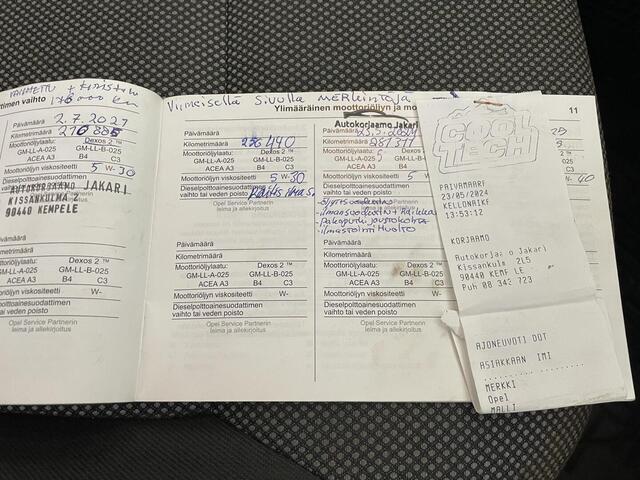 VAIHDETTU +
ttimen vaihto 176000 km
Päivämäärä 2.7.2021
Kilometrimäärä 210 885
Moottoriöljylaatu: Dexos 2 ™
GM-LL-A-025 GM-LL-B-025
ACEA A3 B4 C3
Moottoriöljyn viskositeetti 5 W-30
AUTOKORJAAMO JAKARI
KISSANKULMA 2
90440 KEMPELE
Opel Service Partnerin
leima ja allekirjoitus
Päivämäärä
Kilometrimäärä
Moottoriöljylaatu: Dexos 2 ™
GM-LL-A-025 GM-LL-B-025
ACEA A3 B4 C3
Moottoriöljyn viskositeetti W-
Dieselpolttoainesuodattimen
vaihto tai veden poisto
Opel Service Partnerin
leima ja allekirjoitus
VIIMEISELLÄ SIVULLA MERKINTÖJÄ
Ylimääräinen moottoriöljyn ja mo
11
Päivämäärä
Kilometrimäärä 236 440
Moottoriöljylaatu: Dexos 2 ™
GM-LL-A-025 GM-LL-B-025
ACEA A3 B4 C3
Moottoriöljyn viskositeetti 5 W-30
Dieselpolttoainesuodattimen
vaihto tai veden poisto
Opel Service Partnerin
leima ja allekirjoitus
Päivämäärä
Kilometrimäärä
Moottoriöljylaatu: Dexos 2 ™
GM-LL-A-025 GM-LL-B-025
ACEA A3 B4 C3
Moottoriöljyn viskositeetti W-
Dieselpolttoainesuodattimen
vaihto tai veden poisto
Opel Service Partnerin
leima ja allekirjoitus
Autokorjaamo Jakari
Päivämäärä
Kilometrimäärä
Moottoriöljylaatu:
GM-LL-A-025 GM-L
ACEA A3 B4
Moottoriöljyn viskositeetti 5
Dieselpolttoainesuodattimen
vaihto tai veden poisto
-ilmastointi Huolto
Päivämäärä
Kilometrimäärä
Moottoriöljylaatu: Dexos 2 ™
GM-LL-A-025 GM-LL-B-025
ACEA A3 B4 C3
Moottoriöljyn viskositeetti W-
Dieselpolttoainesuodattimen
vaihto tai veden poisto
Opel Service Partnerin
leima ja allekirjoitus
COOL
TECH
PAIVAMAARF
23/05/2024
KELLONAIKE
13:53:12
KORJAAMO
Autokorjaa o Jakari
Kissankulm 2L5
90440 KEMF LE
Puh 08 342 723
AJONEUVOTI DOT
ASIAKKAAN IMI
MERKKI
Opel
MALLI
25
C3
- 40